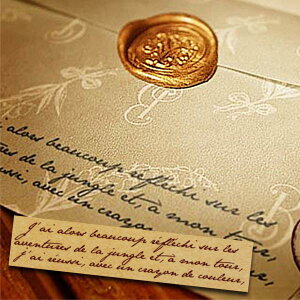 alors beaucoup réfléchi sur les
de la jungle et, à mon tour,
ussi, avec un crayon
J'ai alors beaucoup réfléchi sur les
aventures de la jungle et, à mon tour,
j'ai réussi, avec un crayon de couleur,